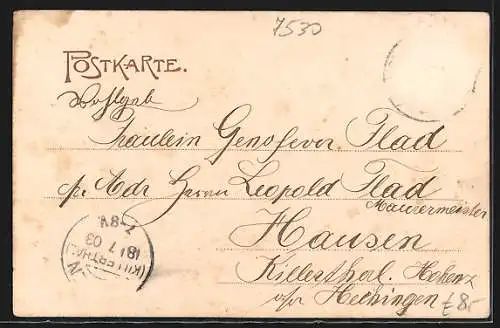 7530
POSTKARTE.
Wohlgeb
Fräulein Genofeva Flad
pr Adr Herrn Leopold Flad
Maurermeister
Hausen
Killerthal. Hohenz
Hechingen
(KILLERTHAL)
18 7 03
7-8V.